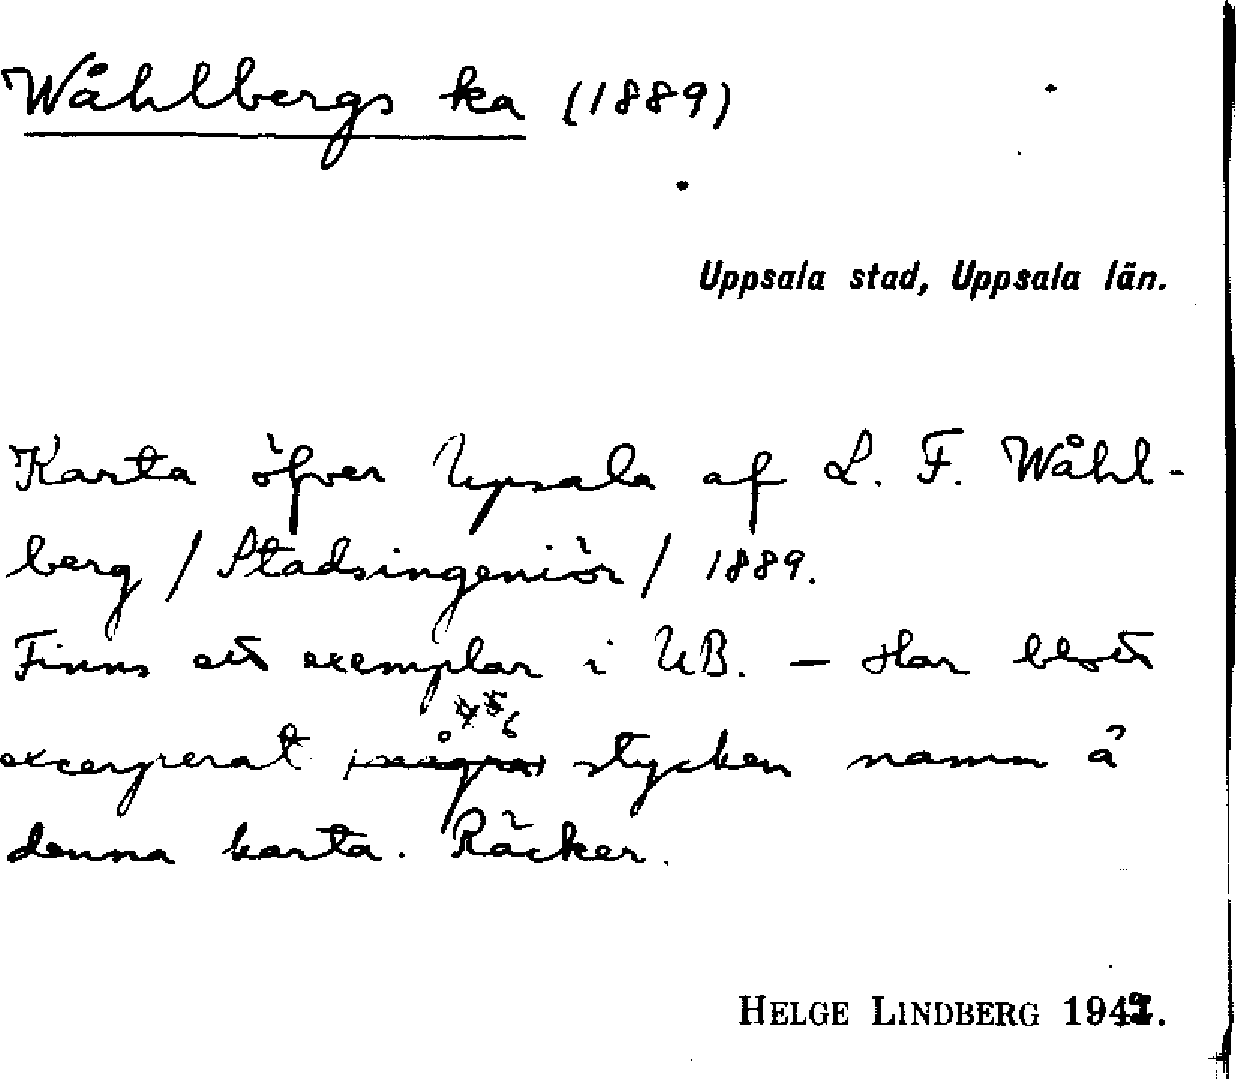 Wåhlbergs ka (1889)
Uppsala stad, Uppsala län.
Karta öfver Upsala af L. F. Wåhl-
berg / Stadsingeniör / 1889.
Finns ett exemplar i UB. — Har blott
4 5 6
excerperat några stycken namn å
denna karta. Räcker.
HELGE LINDBERG 194